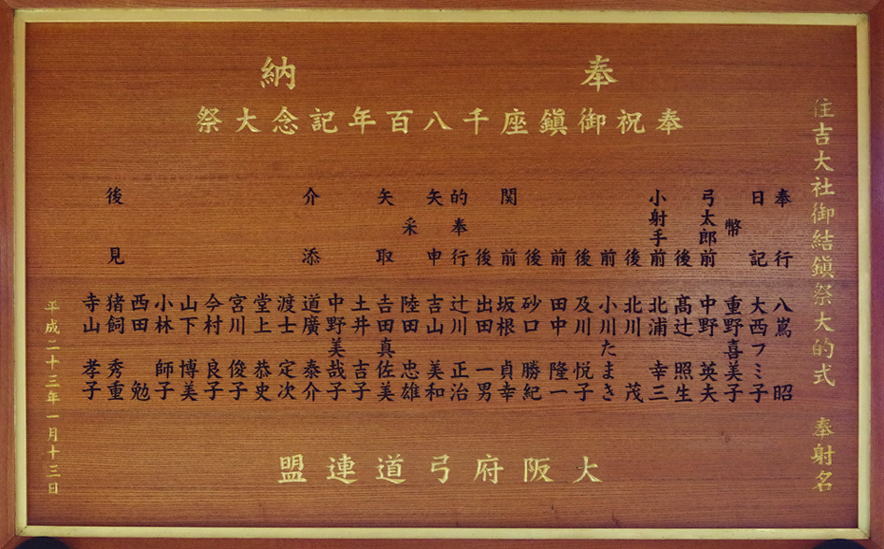 奉納
奉祝御鎮座千八百年記念大祭
住吉大社御結鎮祭大的式 奉射名
奉行 八嶌 昭
日記 大西フミ子
幣 重野喜美子
弓太郎前 中野 英夫
後 髙辻 照生
小射手前 北浦 幸三
後 北川 茂
前 小川たまき
後 及川 悦子
前 田中 隆一
後 砂口 勝紀
関前 坂根 貞幸
後 出田 一男
的奉行 辻川 正治
矢申 吉山 美和
采 陸田 忠雄
矢取 吉田真佐美
土井 吉子
中野美哉子
介添 道廣 泰介
渡士 定次
堂上 恭史
宮川 俊子
今村 良子
山下 博美
小林 師子
西田 勉
後見 猪飼 秀重
寺山 孝子
大阪府弓道連盟
平成二十三年一月十三日